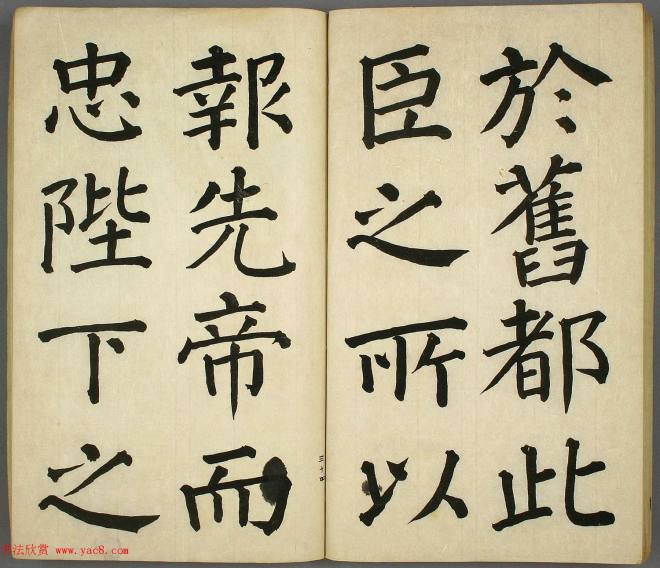 於舊都此
臣之所以
報先帝而
忠陛下之
三十四
法欣赏 www.yac8.com